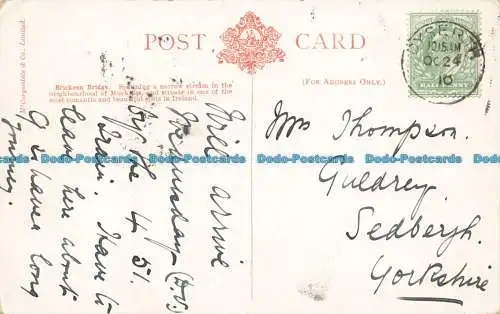 McCorquodale & Co., Limited.
POST CARD
Brickeen Bridge. Spanning a narrow stream in the
neighbourhood of Muckross, and situate in one of the
most romantic and beautiful spots in Ireland.
(FOR ADDRESS ONLY.)
HALFPENNY
10.15 AM
OC 24
10
Will arrive
Wednesday (D.V.)
by the 4.51
train. Have to
leave here about
9 so have a long
journey.
Mrs Thompson.
Guldrey
Sedbergh.
Yorkshire
Dodo-Postcards Dodo-Postcards Dodo-Postcards Dodo-Postcards Dodo-Postcards